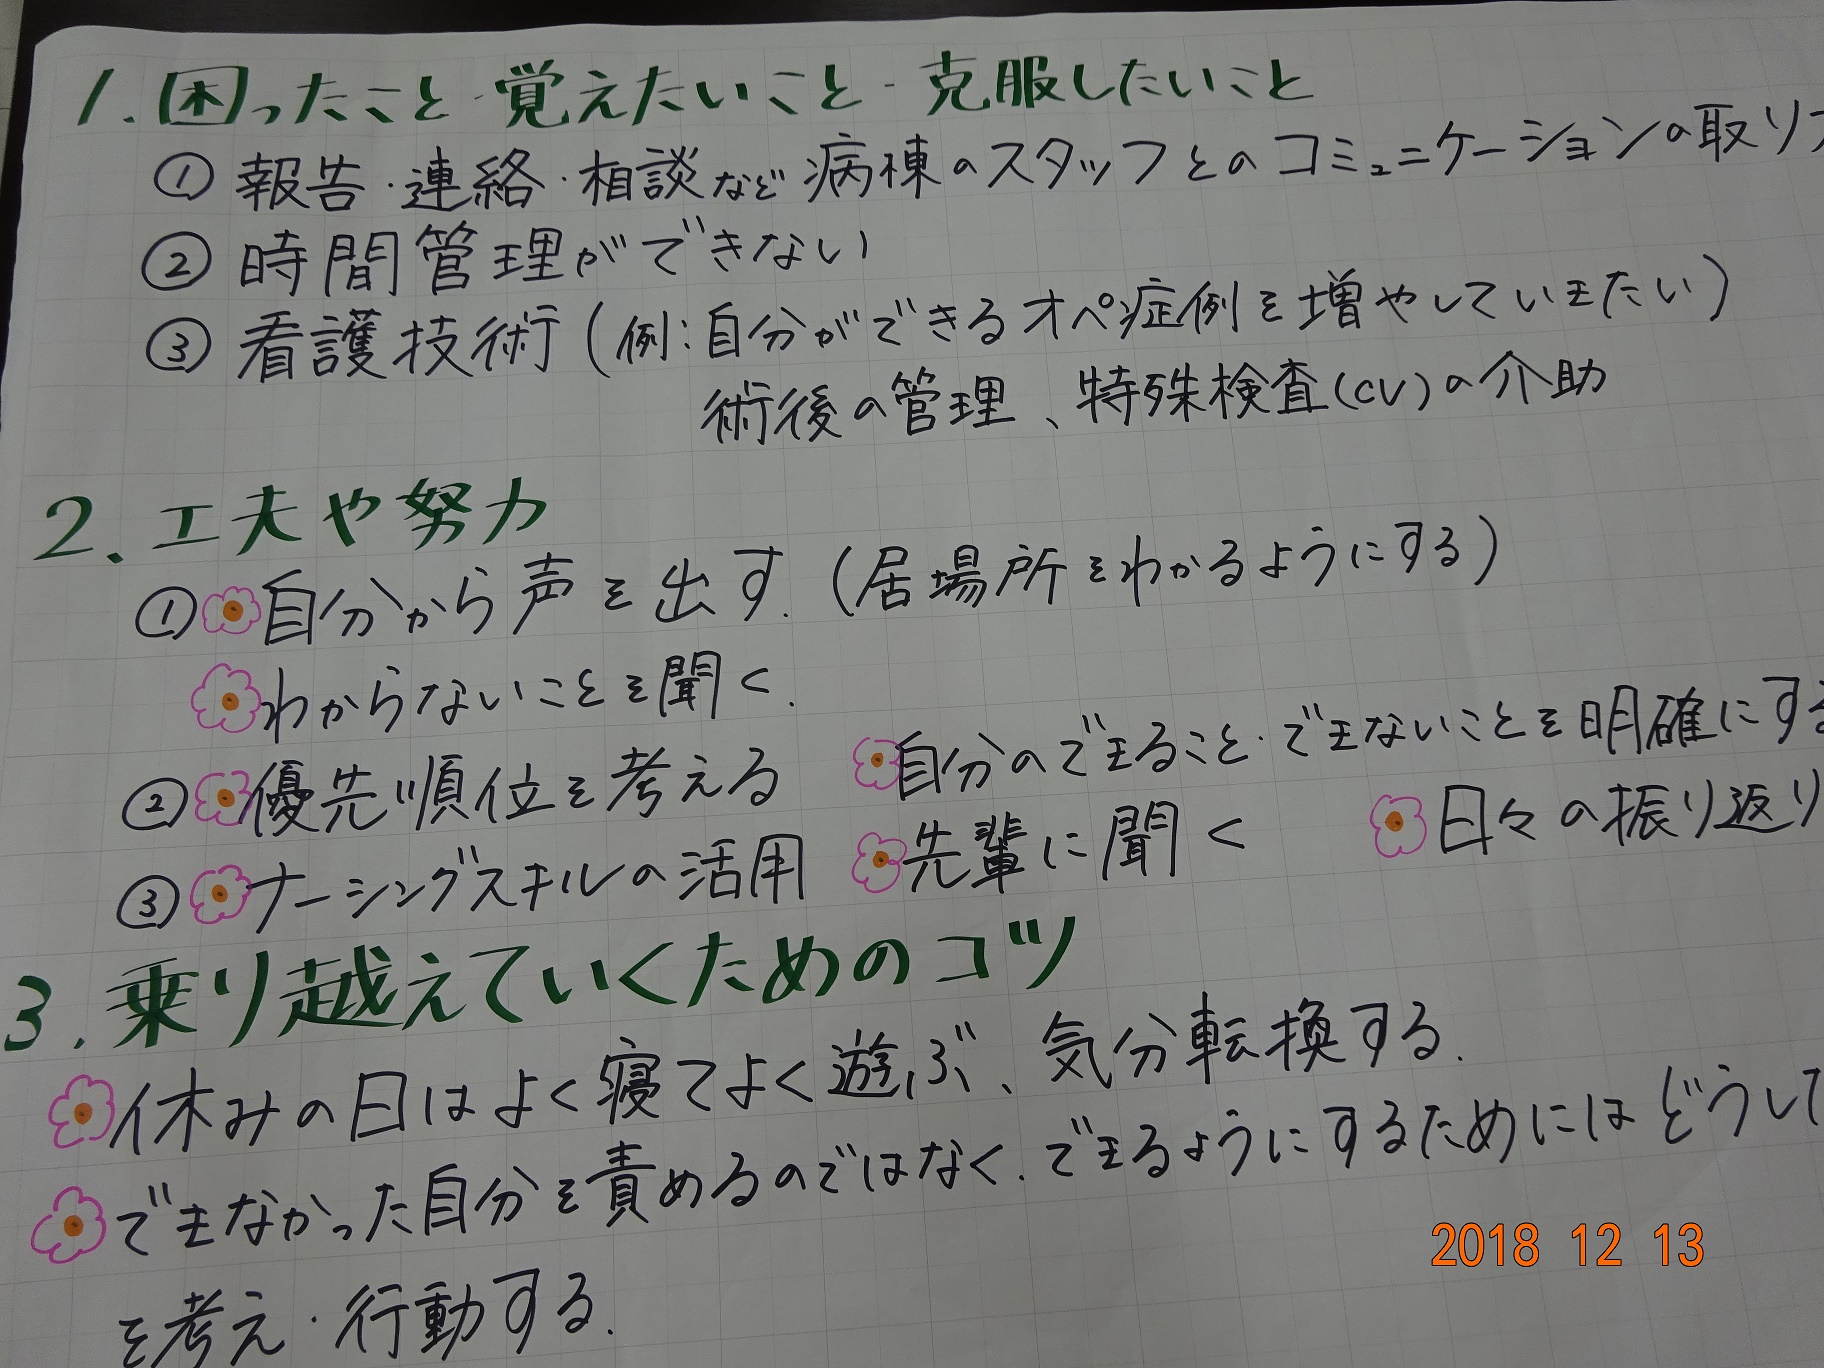 1. 困ったこと・覚えたいこと・克服したいこと
① 報告・連絡・相談など病棟のスタッフとのコミュニケーションの取り
② 時間管理ができない
③ 看護技術(例:自分ができるオペ症例を増やしていきたい)
術後の管理、特殊検査(CV)の介助
2. 工夫や努力
① 自分から声を出す.(居場所をわかるようにする)
わからないことを聞く.
② 優先順位を考える 自分のできること・できないことを明確にする
③ ナーシングスキルの活用 先輩に聞く 日々の振り返り
3. 乗り越えていくためのコツ
休みの日はよく寝てよく遊ぶ、気分転換する.
できなかった自分を責めるのではなく.できるようにするためにはどうして
を考え・行動する.
2018 12 13